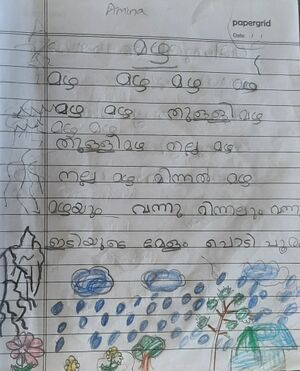 Amina
papergrid
Date: / /
മഴ
മഴ മഴ മഴ മഴ
മഴ മഴ തുള്ളിമഴ
മഴ മഴ
തുള്ളിമഴ നല്ല മഴ
നല്ല മഴ മിന്നൽ മഴ
മഴയും വന്നു മിന്നലും വന്ന
ഇടിയുടെ മേളം പൊടി പൂര